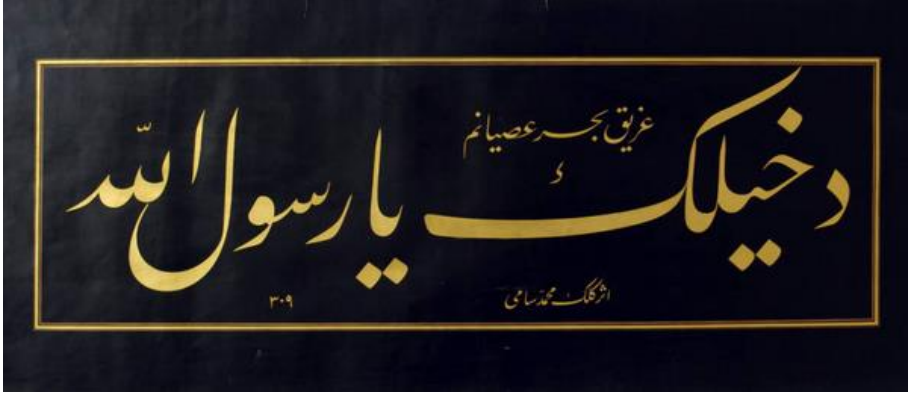 غریق بحر عصیانم
دخیلک یا رسول الله
اثر کلک محمد سامی
٣٠٩